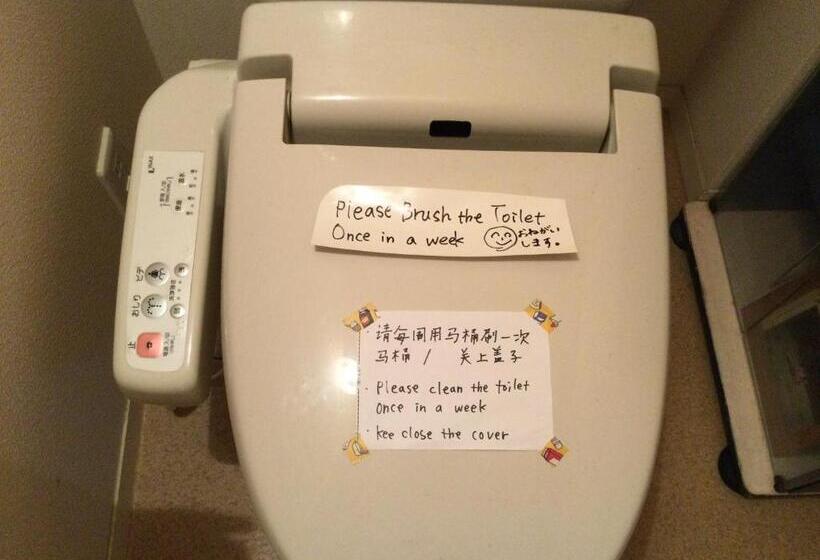 Please Brush the Toilet
Once in a week おねがい
します。
・请每周用马桶刷一次
马桶 / 关上盖子
・Please clean the toilet
Once in a week
・kee close the cover
INAX
ビデ
おしり
止